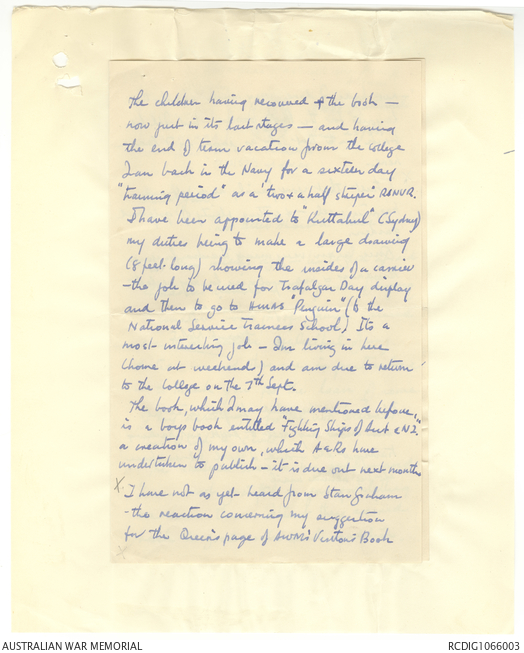 The children having recovered & the book —
now just in its last stages — and having
the end of team vacation from the college
I am back in the Navy for a sixteen day
"training period" as a 'two & a half striper' RANVR.
I have been appointed to "Kuttabul" (Sydney)
my duties being to make a large drawing
(8 feet long) showing the insides of a carrier
— the job to be used for Trafalgar Day display
and then to go to HMAS "Penguin" (to the
National Service Trainees School.) Its a
most interesting job — I'm living in here
(home at weekend) and am due to return
to the College on the 7th Sept.
The book, which I may have mentioned before,
is a boys book entitled "Fighting Ships of Aust & N.Z."
a creation of my own, which A&Rs have
undertaken to publish — it is due out next month
X. I have not as yet heard from Stan Graham
- the reaction concerning my suggestion
for the Queen's page of AWM's Visitor's Book
X
AUSTRALIAN WAR MEMORIAL
RCDIG1066003